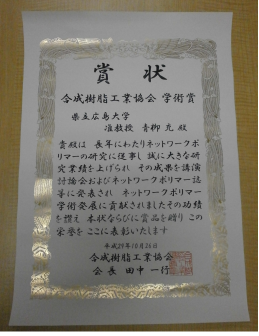 賞状
合成樹脂工業協会 学術賞
県立広島大学
准教授 青柳 充 殿
貴殿は 長年にわたりネットワークポ
リマーの研究に従事し 誠に大きな研
究業績を上げられ その成果を講演
討論会およびネットワークポリマー誌
等に発表され ネットワークポリマー
学術発展に貢献されましたその功績
を讃え 本状ならびに賞品を贈り この
栄誉をここに表彰いたします
平成29年10月26日
合成樹脂工業協会
会長 田中 一行